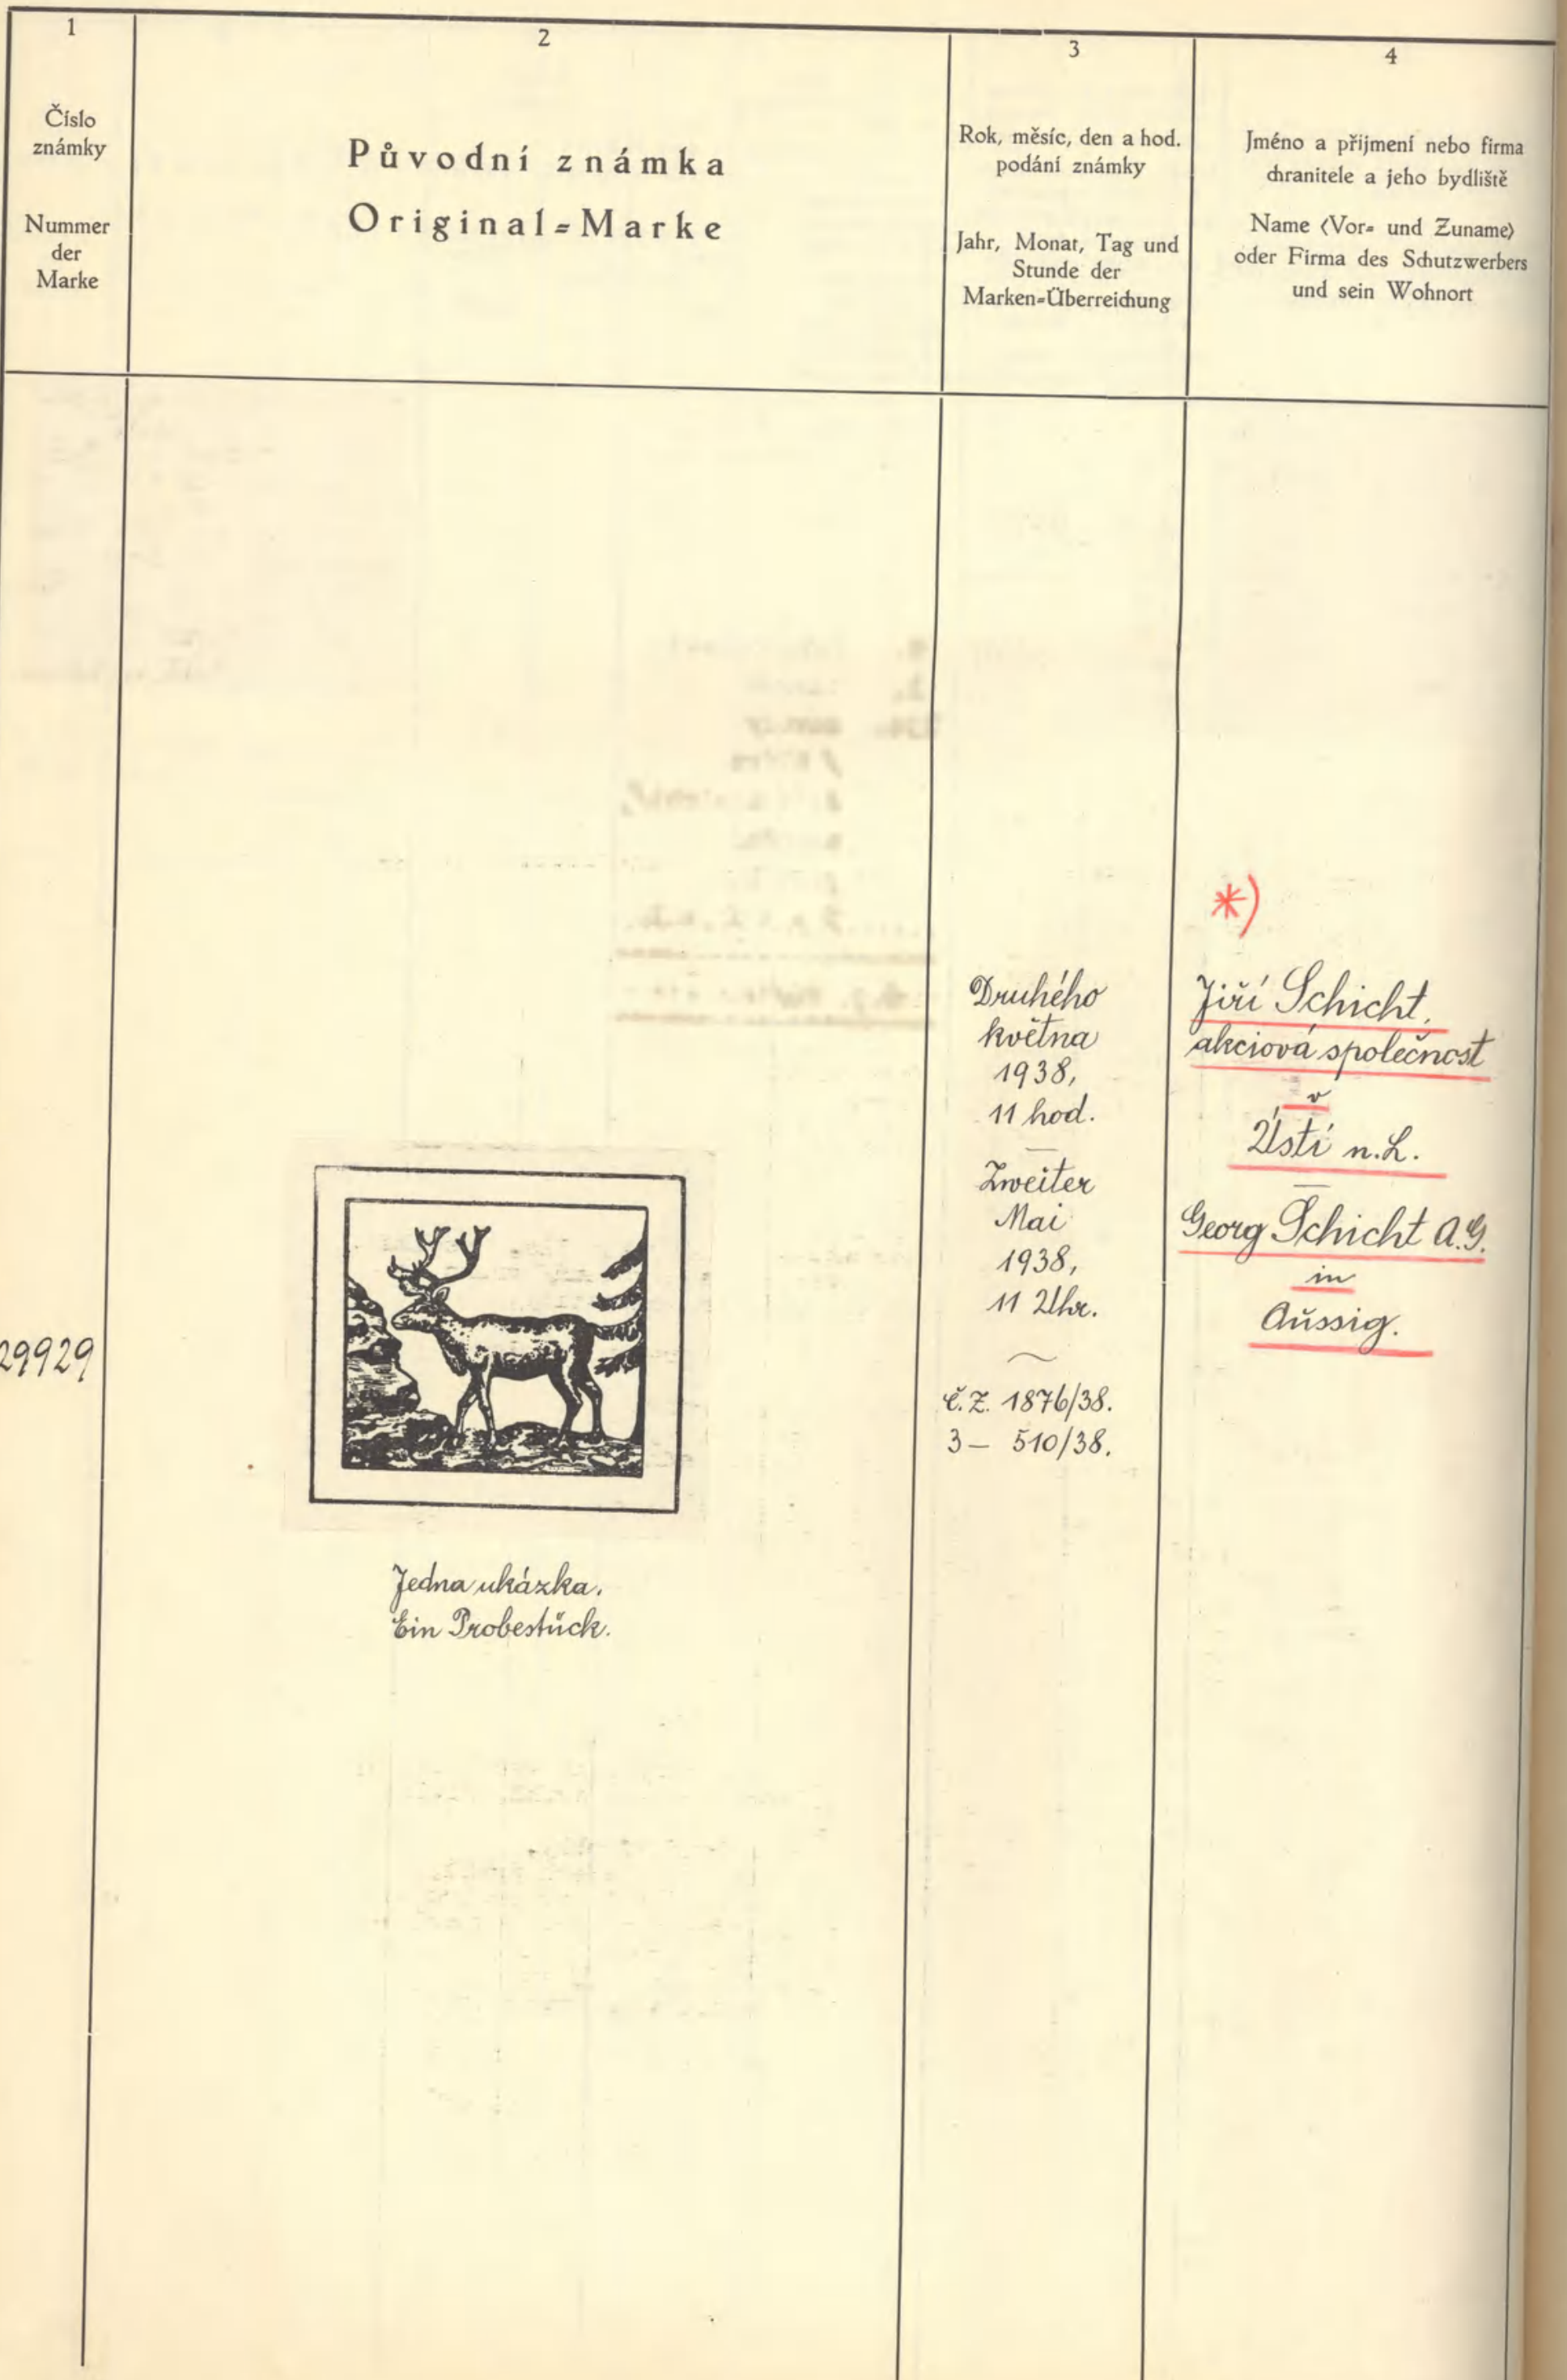 1
Číslo
známky
Nummer
der
Marke
2
Původní známka
Original=Marke
3
Rok, měsíc, den a hod.
podání známky
Jahr, Monat, Tag und
Stunde der
Marken=Überreichung
4
Jméno a přijmení nebo firma
chranitele a jeho bydliště
Name (Vor= und Zuname)
oder Firma des Schutzwerbers
und sein Wohnort
29929
Jedna ukázka.
Ein Probestück.
Druhého
května
1938,
11 hod.
Zweiter
Mai
1938,
11 Uhr.
č.z. 1876/38.
3 — 510/38.
*)
Jiří Schicht,
akciová společnost
v
Ústí n.L.
Georg Schicht A.G.
in
Aussig.